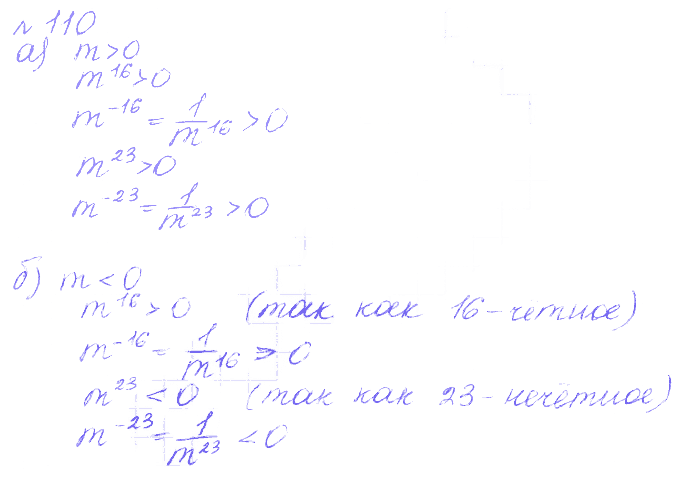 № 110
а) m>0
m^16>0
m^-16 = 1/m^16 >0
m^23>0
m^-23 = 1/m^23 >0
б) m<0
m^16>0 (так как 16-четное)
m^-16 = 1/m^16 >0
m^23<0 (так как 23-нечётное)
m^-23 = 1/m^23 <0